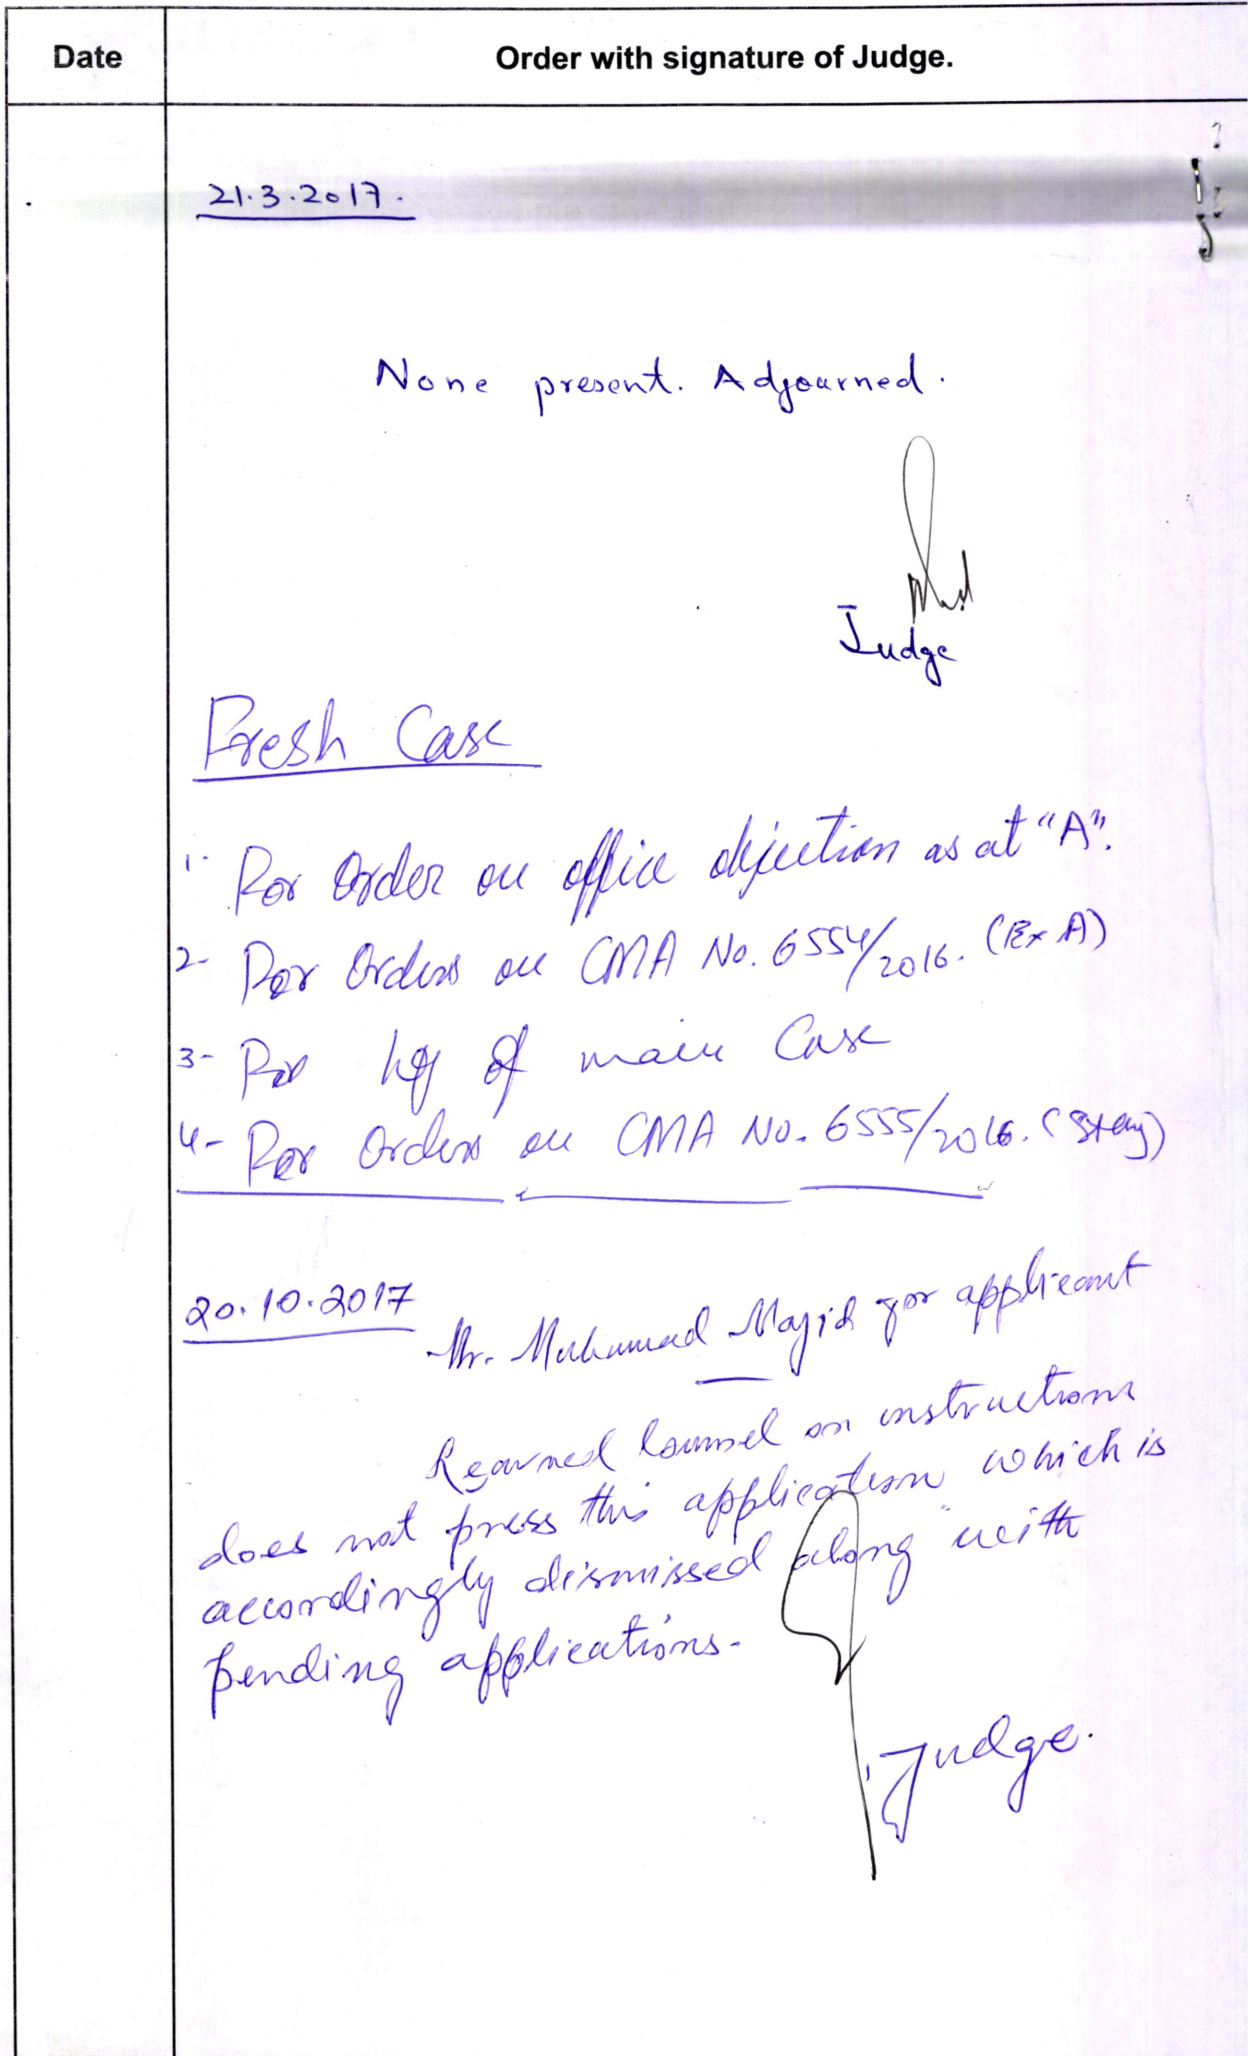 Date Order with signature of Judge.
21.3.2017.
None present. Adjourned.
Judge
Fresh Case
1- For Order on office objection as at "A".
2- For Orders on CMA No. 6554/2016. (Ex A)
3- For hg of main Case
4- For Orders on CMA No. 6555/2016. (Stay)
20.10.2017
Mr. Muhammad Majid for applicant
Learned Counsel on instructions
does not press this application which is
accordingly dismissed along with
pending applications.
Judge.